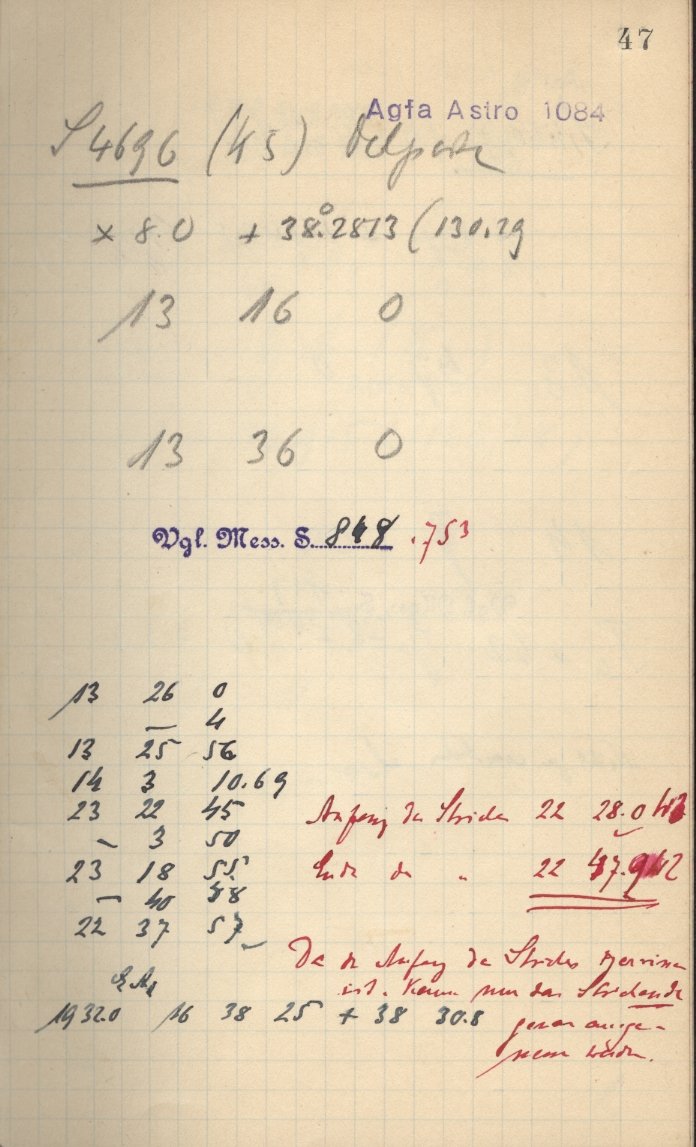 47
Agfa Astro 1084
S 4696 (45) Delporte
× 8.0 + 38°.2813 (130.29
13 16 0
13 36 0
Vgl. Mess. S. 848 .753
13 26 0
— 4
13 25 56
14 3 10.69
23 22 45
— 3 50
23 18 55
— 40 58
22 37 57
Anfang des Striches 22 28.0
Ende des " 22 47.9
Da der Anfang des Striches
ist. Kann nur das Strichende
genau ange-
werden.
1932.0 16 38 25 + 38 30.8